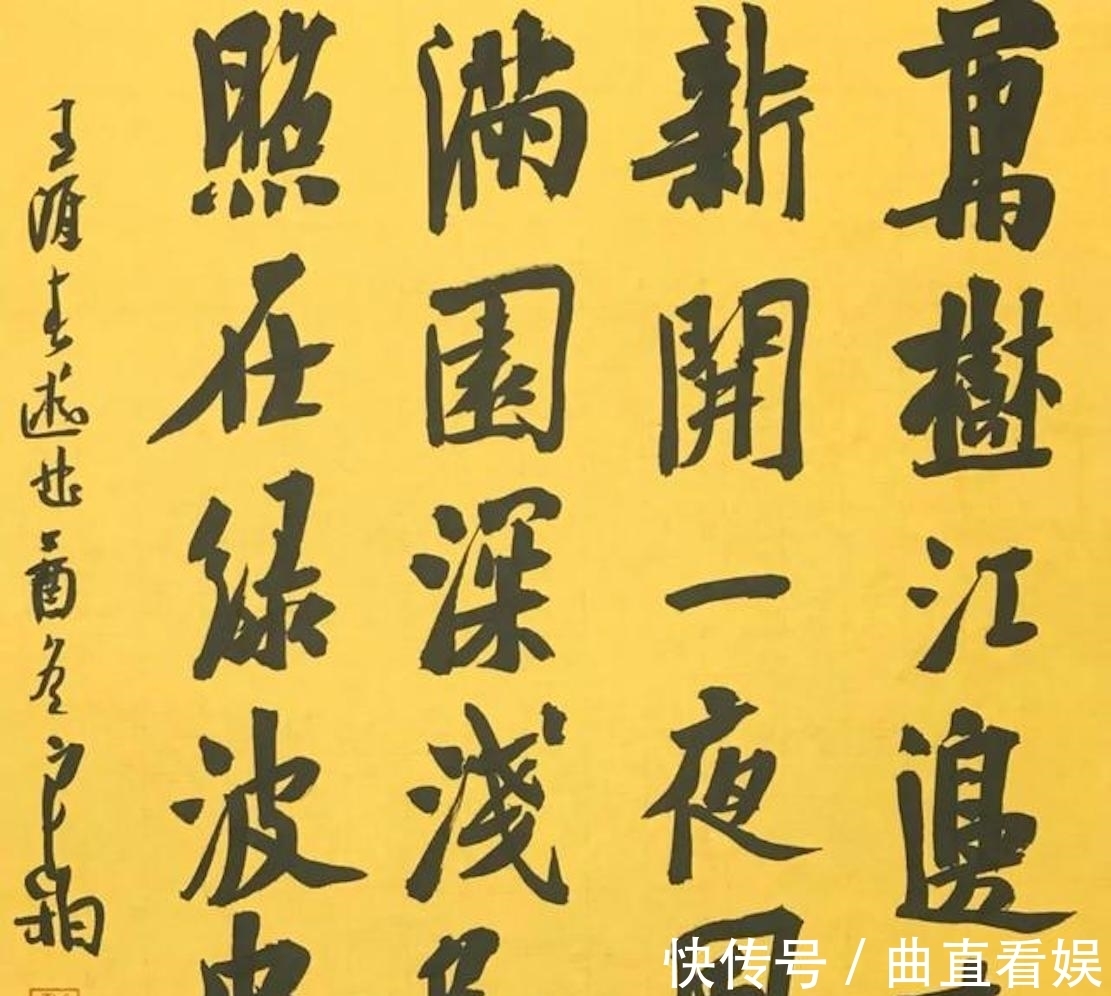 萬樹江邊
新開一夜
滿園深淺
照在綠波中
王涯春遊曲丁酉冬
快传号 / 曲直看娱